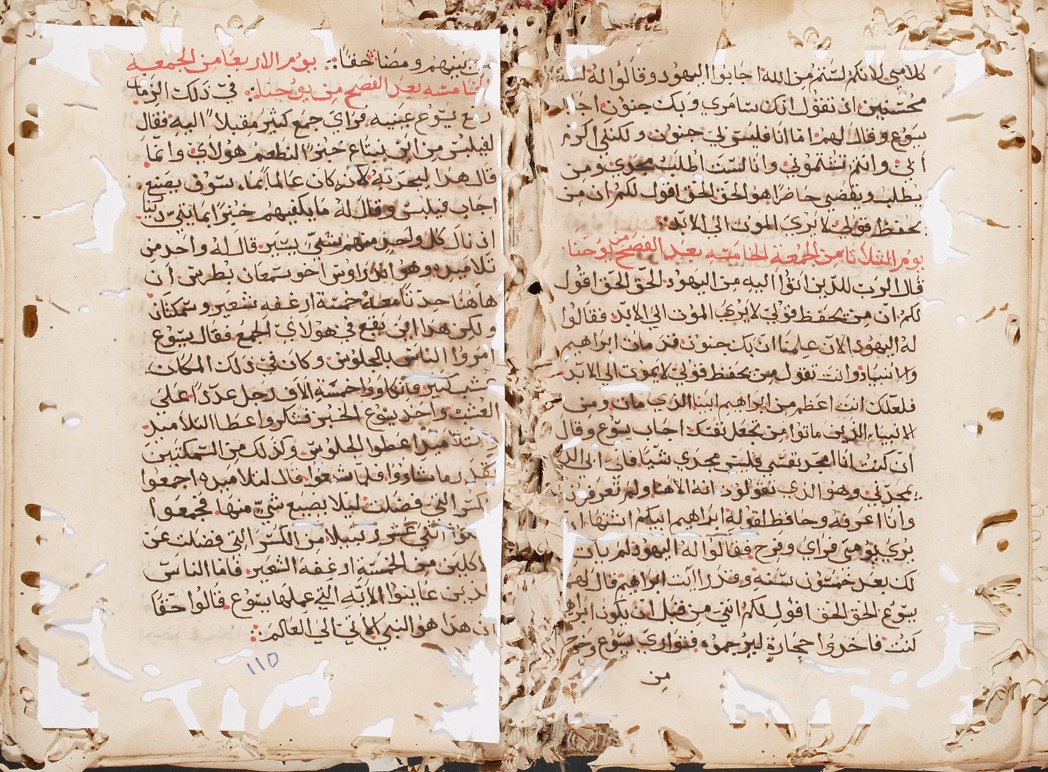 كلامي لانكم لستم من الله اجابوا اليهود وقالوا له السنا
محسنين ان نقول انك سامري وبك جنون اجاب
يسوع وقال لهم اما انا فليس بي جنون ولكني اكرم
ابي وانتم تشتموني وانا لست اطلب مجدي ومن
يطلب ويقضي حاضرا هو الحق الحق اقول لكم ان من
يحفظ قولي لا يري الموت الي الابد
يوم الثلاثا من الجمعة الخامسه بعد الفصح من يوحنا
قال الرب للذين اتوا اليه من اليهود الحق الحق اقول
لكم ان من يحفظ قولي لا يري الموت الي الابد فقالوا
له اليهود الان علمنا ان بك جنون قد مات ابراهيم
والانبيا وانت تقول من يحفظ قولي لا يموت الي الابد
فلعلك انت اعظم من ابراهيم ابينا الذي مات ومن
الانبياء الذين ماتوا من تجعل نفسك اجاب يسوع وقال
ان كنت انا امجد نفسي فليس مجدي شيا فان ابي الذي
يمجدني وهو الذي تقولون انه الاهنا ولم تعرفوه
وانا اعرفه وحافظ لقوله ابراهيم ابيكم اشتها ان
يري يومي فراي وفرح فقالوا له اليهود لم يات
لك بعد خمسون سنه وقد رايت ابراهيم قال لهم
يسوع الحق الحق اقول لكم انني من قبل ان يكون ابرهيم
كنت فاخذوا حجارة ليرجموه فتواري يسوع وخرج
من
من بينهم ومضا مختفا يوم الاربعا من الجمعه
الخامسه بعد الفصح من يوحنا في ذلك الزمان
رفع يسوع عينيه فراي جمع كثير مقبلا اليه فقال
لفيلبس من اين نبتاع خبزا لنطعم هولاي وانما
قال هذا ليجربه لانه كان عالما بما سوف يصنع
اجاب فيلبس وقال له ما يكفيهم خبزا بمايتي دينار
ان نال كل واحد منهم شي يسير قال له واحد من
تلاميذه وهو اندراوس اخو سمعان بطرس ان
هاهنا حدثا معه خمسة ارغفه شعير وسمكتان
ولكن هذا اين يقع في هولاي الجمع فقال يسوع
امروا الناس بالجلوس وكان في ذلك المكان
عشب كثير فاتكاوا خمسة الاف رجل عددا علي
العشب واخذ يسوع الخبز فشكر واعطا التلاميذ
والتلاميذ اعطوا الجلوس وكذلك من السمكتين
بقدر ما شاوا فلما شبعوا قال لتلاميذه اجمعوا
الكسر التي فضلت ليلا يضيع شي منها فجمعوا
اثني عشر زنبيلا من الكسر التي فضلت عن
الاكلين من الخمسة ارغفة الشعير فاما الناس
الذين عاينوا الايه التي عملها يسوع قالوا حقا
ان هذا هو النبي الاتي الي العالم
110